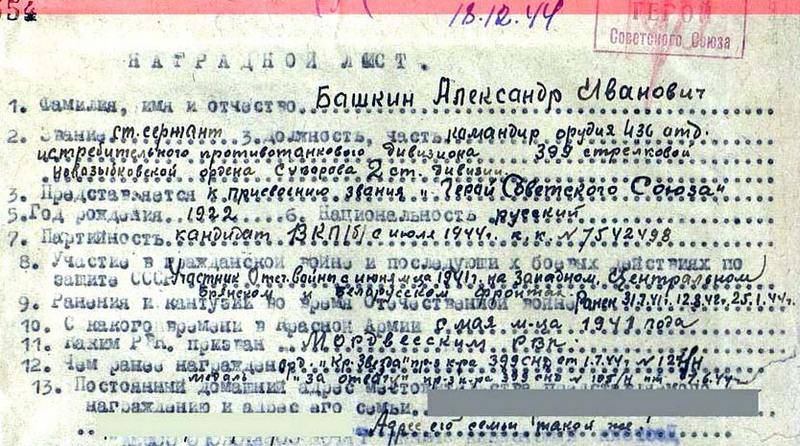 554
18.12.44
ГЕРОЙ
Советского Союза
НАГРАДНОЙ ЛИСТ.
1. Фамилия, имя и отчество Башкин Александр Иванович
2. Звание ст. сержант 3. Должность, часть командир орудия 436 отд.
истребительного противотанкового дивизиона 399 стрелковой
новозыбковской ордена Суворова 2 ст. дивизии.
3. Представляется к присвоению звания "Герой Советского Союза"
5. Год рождения 1922 6. Национальность русский
7. Партийность кандидат ВКП(б) с июля 1944г. к.к. № 7542498
8. Участие в гражданской войне и последующих боевых действиях по
защите СССР Участник Отеч. войны с июня м-ца 1941г. на западном, Центральном
Брянском и Белорусском фронтах.
9. Ранения и кантузии во время Отечественной войне Ранен 31.7.41г. 12.8.42г. 25.1.44г.
10. С какого времени в Красной Армии с мая м-ца 1941 года
11. Каким РВК. призван Мордвесским РВК.
12. Чем ранее награжден орд. "Кр. Звезда" пр-з к-ра 399 СНД от 1.7.44г. № 127/Н
медаль "За отвагу" пр-з к-ра 399 СНД № 105/Н от 7.6.44г.
13. Постоянный домашний адрес
награждению и адрес его семьи.
Адрес его семьи такой же.